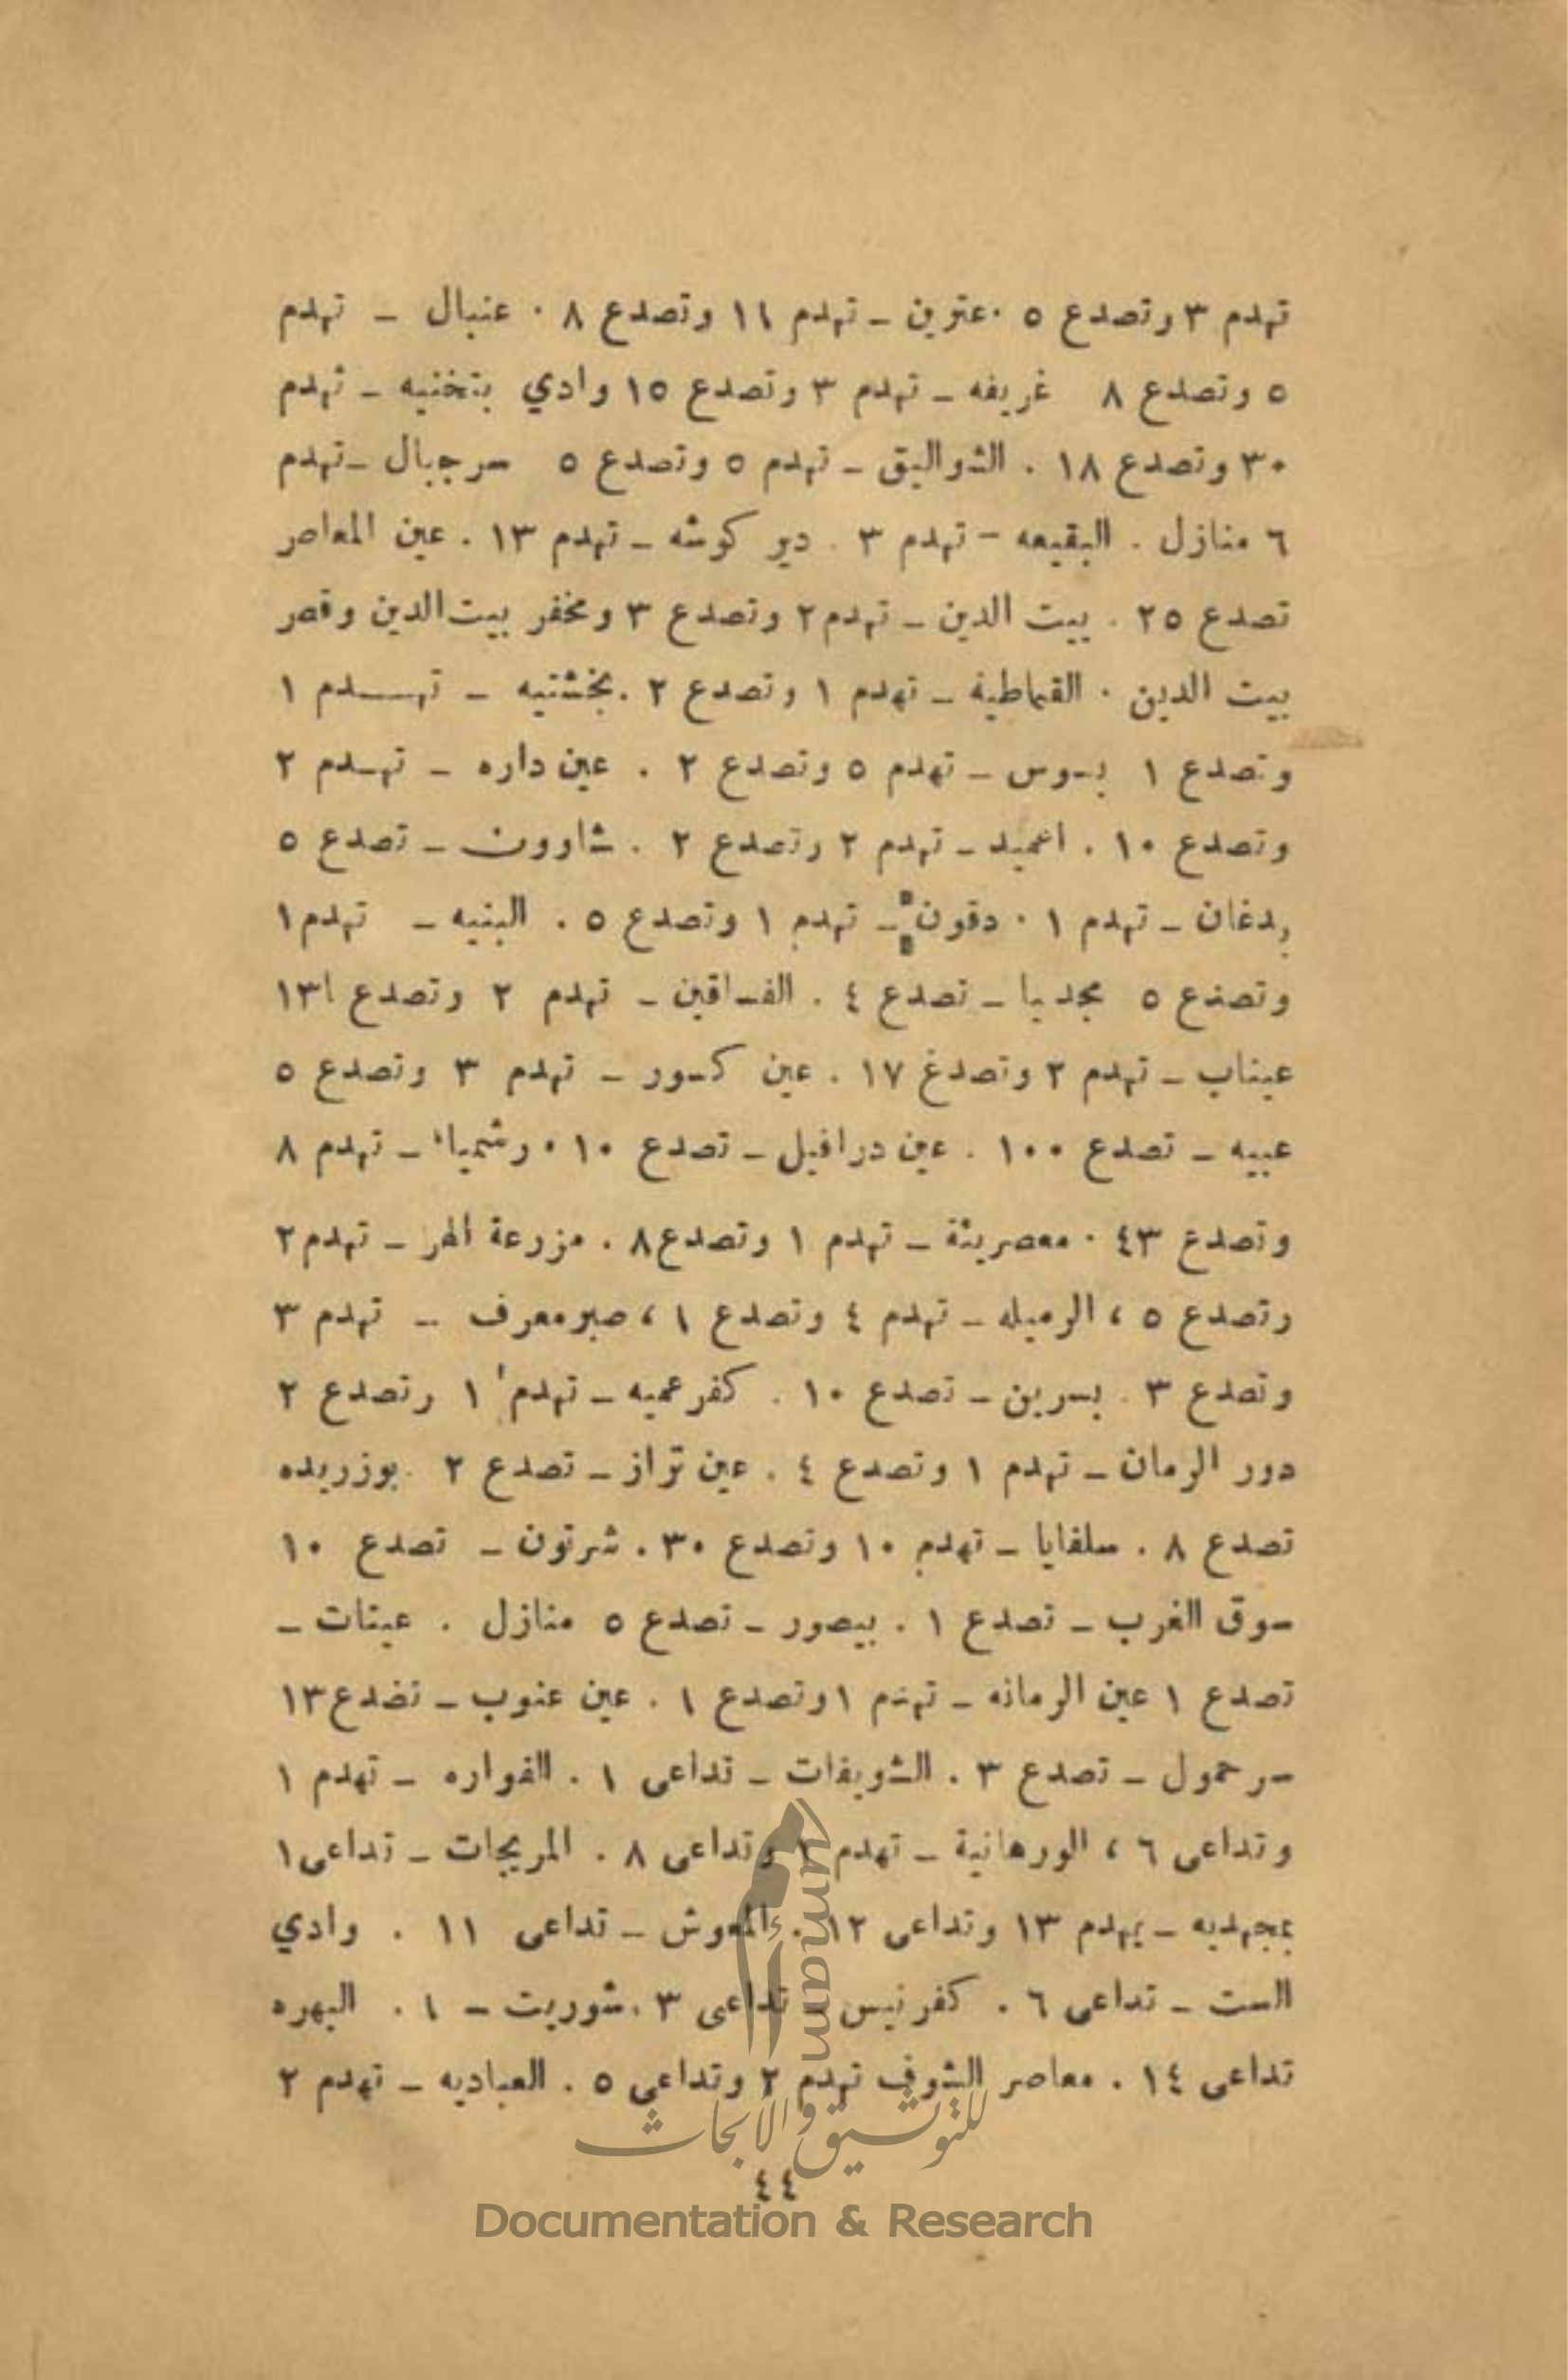 تهدم ٣ وتصدع ٥ . عترين – تهدم ١١ وتصدع ٨ . عنبال – تهدم
٥ وتصدع ٨ غريفه – تهدم ٣ وتصدع ١٥ وادي بنخنيه – تهدم
٣٠ وتصدع ١٨ . الشواليق – تهدم ٥ وتصدع ٥ سرجبال – تهدم
٦ منازل . البقيعه – تهدم ٣ . دير كوشه – تهدم ١٣ . عين المعاصر
تصدع ٢٥ . بيت الدين – تهدم ٢ وتصدع ٣ ومخفر بيت الدين وقصر
بيت الدين . القماطية – تهدم ١ وتصدع ٢ . بخشتيه – تهـــدم ١
وتصدع ١ بسوس – تهدم ٥ وتصدع ٢ . عين داره – تهـدم ٢
وتصدع ١٠ . اغميد – تهدم ٢ وتصدع ٢ . شارون – تصدع ٥
بدغان – تهدم ١ . دقون – تهدم ١ وتصدع ٥ . البنيه – تهدم ١
وتصدع ٥ مجدبا – تصدع ٤ . الفساقين – تهدم ٢ وتصدع ١٣
عيناب – تهدم ٢ وتصدغ ١٧ . عين كسور – تهدم ٣ وتصدع ٥
عبيه – تصدع ١٠٠ . عين درافيل – تصدع ١٠ . رشميا – تهدم ٨
وتصدع ٤٣ . معصريتة – تهدم ١ وتصدع ٨ . مزرعة النهر – تهدم ٢
وتصدع ٥ ، الرميله – تهدم ٤ وتصدع ١ ، صبرمعرف – تهدم ٣
وتصدع ٣ . بسرين – تصدع ١٠ . كفرعميه – تهدم ١ وتصدع ٢
دور الرمان – تهدم ١ وتصدع ٤ . عين تراز – تصدع ٢ . بوزريده
تصدع ٨ . سلفايا – تهدم ١٠ وتصدع ٣٠ . شرتون – تصدع ١٠
سوق الغرب – تصدع ١ . بيصور – تصدع ٥ منازل . عيتات –
تصدع ١ عين الرمانه – تهدم ١ وتصدع ١ . عين عنوب – تضدع ١٣
سرحمول – تصدع ٣ . الشويفات – تداعى ١ . الفواره – تهدم ١
وتداعى ٦ ، الورهانية – تهدم وتداعى ٨ . المريجات – تداعى ١
بمجهديه – يهدم ١٣ وتداعى ١٢ . المعوش – تداعى ١١ . وادي
الست – تداعى ٦ . كفرنيس – تداعى ٣ . شوريت – ١ . البهره
تداعى ١٤ . معاصر الشوف تهدم ٢ وتداعى ٥ . العباديه – تهدم ٢
٤٤
أمم Umam
للتوثيق والأبحاث
Documentation & Research